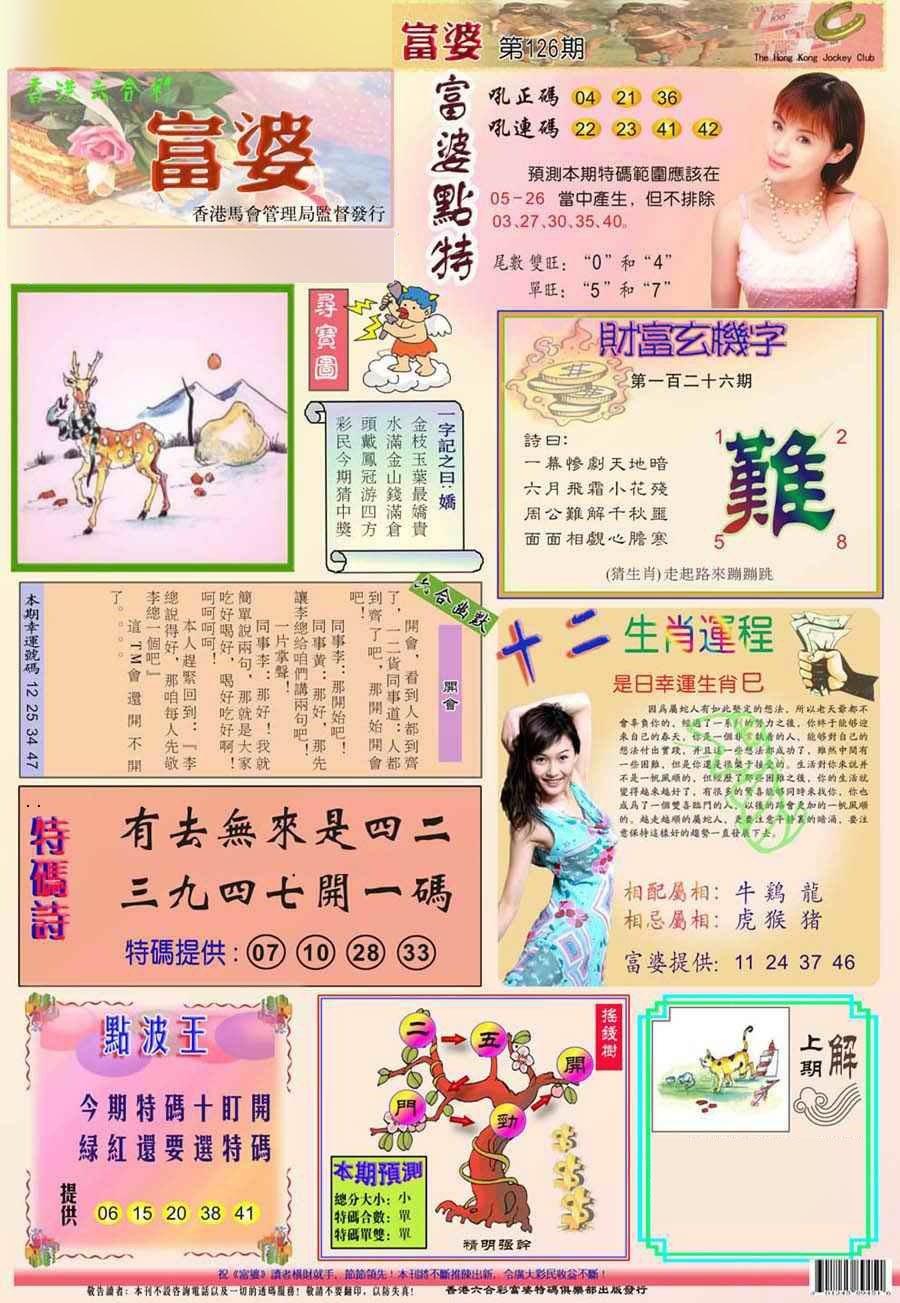 富婆 第126期
The Hong Kong Jockey Club
香港六合彩
富婆
香港馬會管理局監督發行
富婆點特
吼正碼 04 21 36
吼連碼 22 23 41 42
預測本期特碼範圍應該在
05-26 當中產生，但不排除
03、27、30、35、40。
尾數雙旺：“0”和“4”
單旺：“5”和“7”
尋寶圖
一字記之曰：嬌
金枝玉葉最嬌貴
水滿金山錢滿倉
頭戴鳳冠游四方
彩民今期猜中獎
財富玄機字
第一百二十六期
詩曰：
一幕慘劇天地暗
六月飛霜小花殘
周公難解千秋噩
面面相覷心膽寒
1 2
難
5 8
(猜生肖)走起路來蹦蹦跳
六合幽默
開會
開會，看到人都到齊
了，一二貨同事道：人都
到齊了吧，那開始開會
吧！
同事李：那開始吧！
同事黃：那好，那先
讓李總給咱們講兩句吧！
一片掌聲！
同事李：那好！我就
簡單說兩句，那就是大家
吃好喝好，喝好吃好啊！
呵呵呵呵！
本人趕緊回到：『李
總說得好，那咱每人先敬
李總一個吧』
這TM會還開不開
了。。。
本期幸運號碼 12 25 34 47
十二生肖運程
是日幸運生肖巳
因爲屬蛇人有如此堅定的想法，所以老天爺都不
會辜負你的，經過了一系列的努力之後，你終于能够迎
來自己的春天，你是一個非常執着的人，能够對自己的
想法付出實踐，并且這一些想法都成功了，雖然中間有
一些困難，但是你還是很樂于接受的。生活對你來説并
不是一帆風順的，但經歷了那些困難之後，你的生活就
變得越來越好了，有很多的驚喜能够同時來找你，你也
成爲了一個雙喜臨門的人，以後的路會更加的一帆風順
的。越走越順的屬蛇人，更要注意平静裏的暗涌，要注
意保持這樣好的趨勢一直發展下去。
相配屬相：牛 鷄 龍
相忌屬相：虎 猴 猪
富婆提供：11 24 37 46
特碼詩
有去無來是四二
三九四七開一碼
特碼提供：07 10 28 33
點波王
今期特碼十盯開
緑紅還要選特碼
提供 06 15 20 38 41
搖錢樹
二 五 開
門 勁
本期預測
總分大小：小
特碼合數：單
特碼單雙：單
精明强幹
上期解
祝《富婆》讀者橫財就手，節節領先！本刊將不斷推陳出新，令廣大彩民收益不斷！
敬告讀者：本刊不設咨詢電話以及一切的透碼服務！敬請不要翻印，以防失真！ 香港六合彩富婆特碼俱樂部出版發行